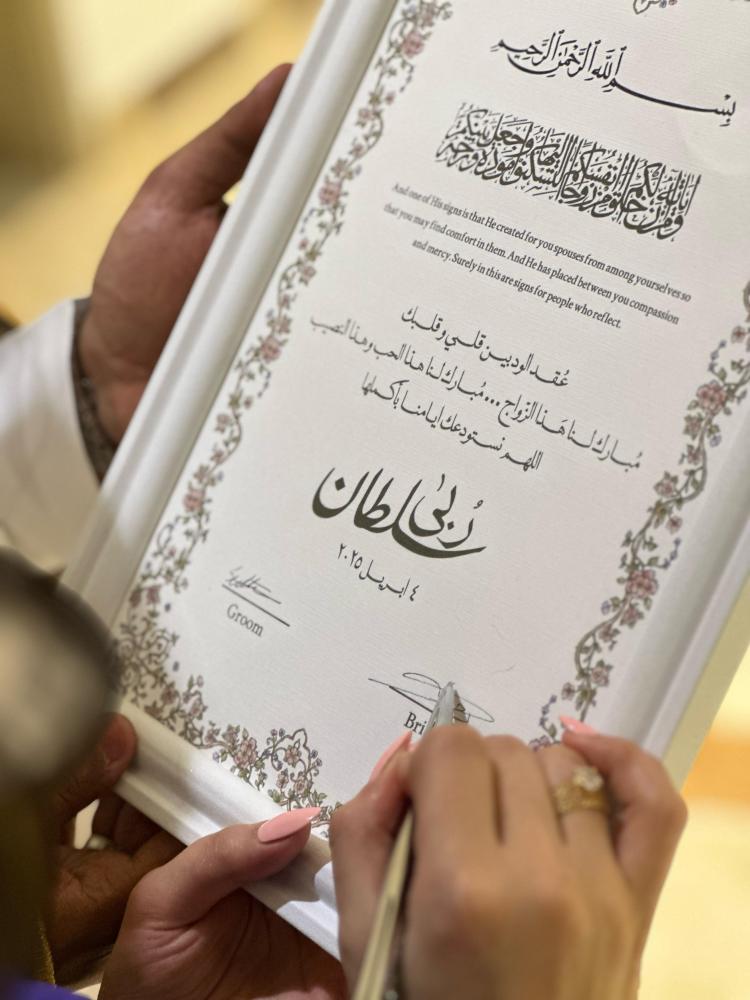 بِسْمِ اللَّهِ الرَّحْمَٰنِ الرَّحِيمِ
وَمِنْ آيَاتِهِ أَنْ خَلَقَ لَكُم مِّنْ أَنفُسِكُمْ أَزْوَاجًا لِّتَسْكُنُوا إِلَيْهَا وَجَعَلَ بَيْنَكُم مَّوَدَّةً وَرَحْمَةً
And one of His signs is that He created for you spouses from among yourselves so
that you may find comfort in them. And He has placed between you compassion
and mercy. Surely in this are signs for people who reflect.
عُقد الود بين قلبي وقلبك
مُبارك لنا هَذا الزواج ... مُبارك لنا هذا الحب وهذا النصيب
اللهم نستودعك ايامنا بأكملها
رُبىٰ
سلطان
٤ ابريل ٢٠٢٥
Groom